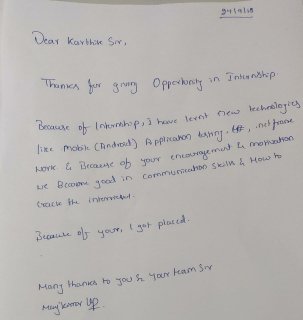 24/9/18
Dear Karthik Sir,
Thanks for giving Opportunity in Internship
Because of Internship, I have lernt new technologies
like mobile (Android) Application testing, .net frame
work & Because of your encouragement & motivation
we Become good in communication skills & How to
crack the interview.
Because of your, I got placed.
Many thanks to you & your team Sir